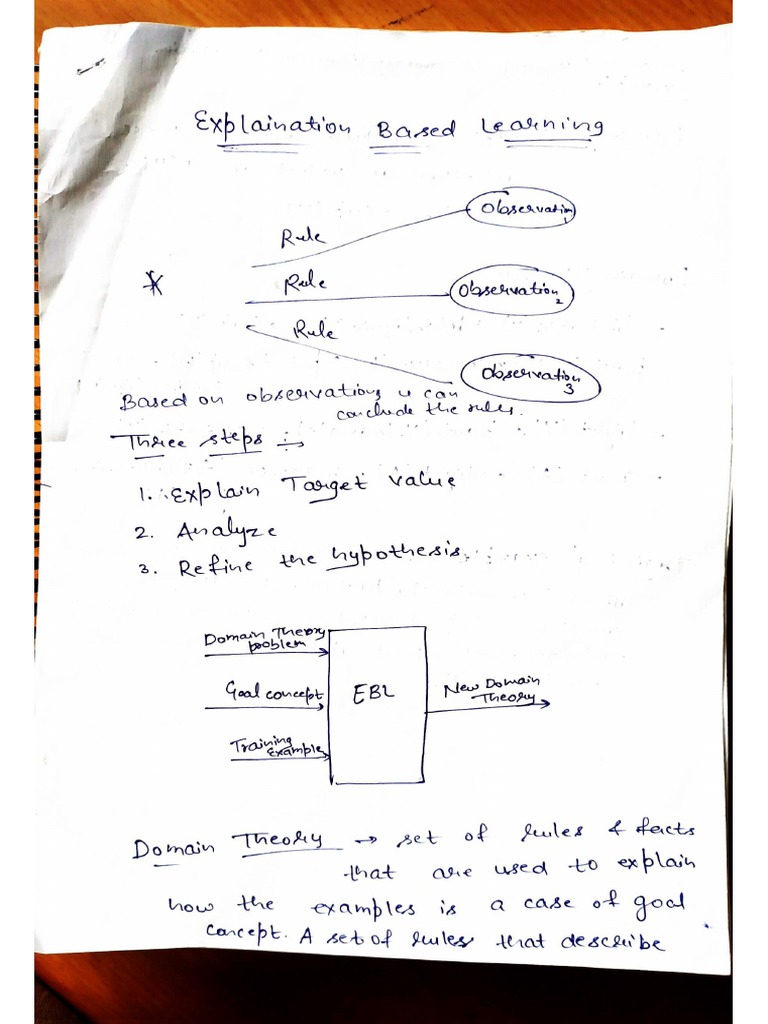 Explaination Based Learning
Rule
Observation 1
*
Rule
Observation 2
Rule
Observation 3
Based on observations u can
conclude the rules.
Three steps :-
1. Explain Target value
2. Analyze
3. Refine the hypothesis.
Domain Theory
problem
Goal concept
Training
Example
EBL
New Domain
Theory
Domain Theory → set of rules & facts
that are used to explain
how the examples is a case of goal
concept. A set of rules that describe